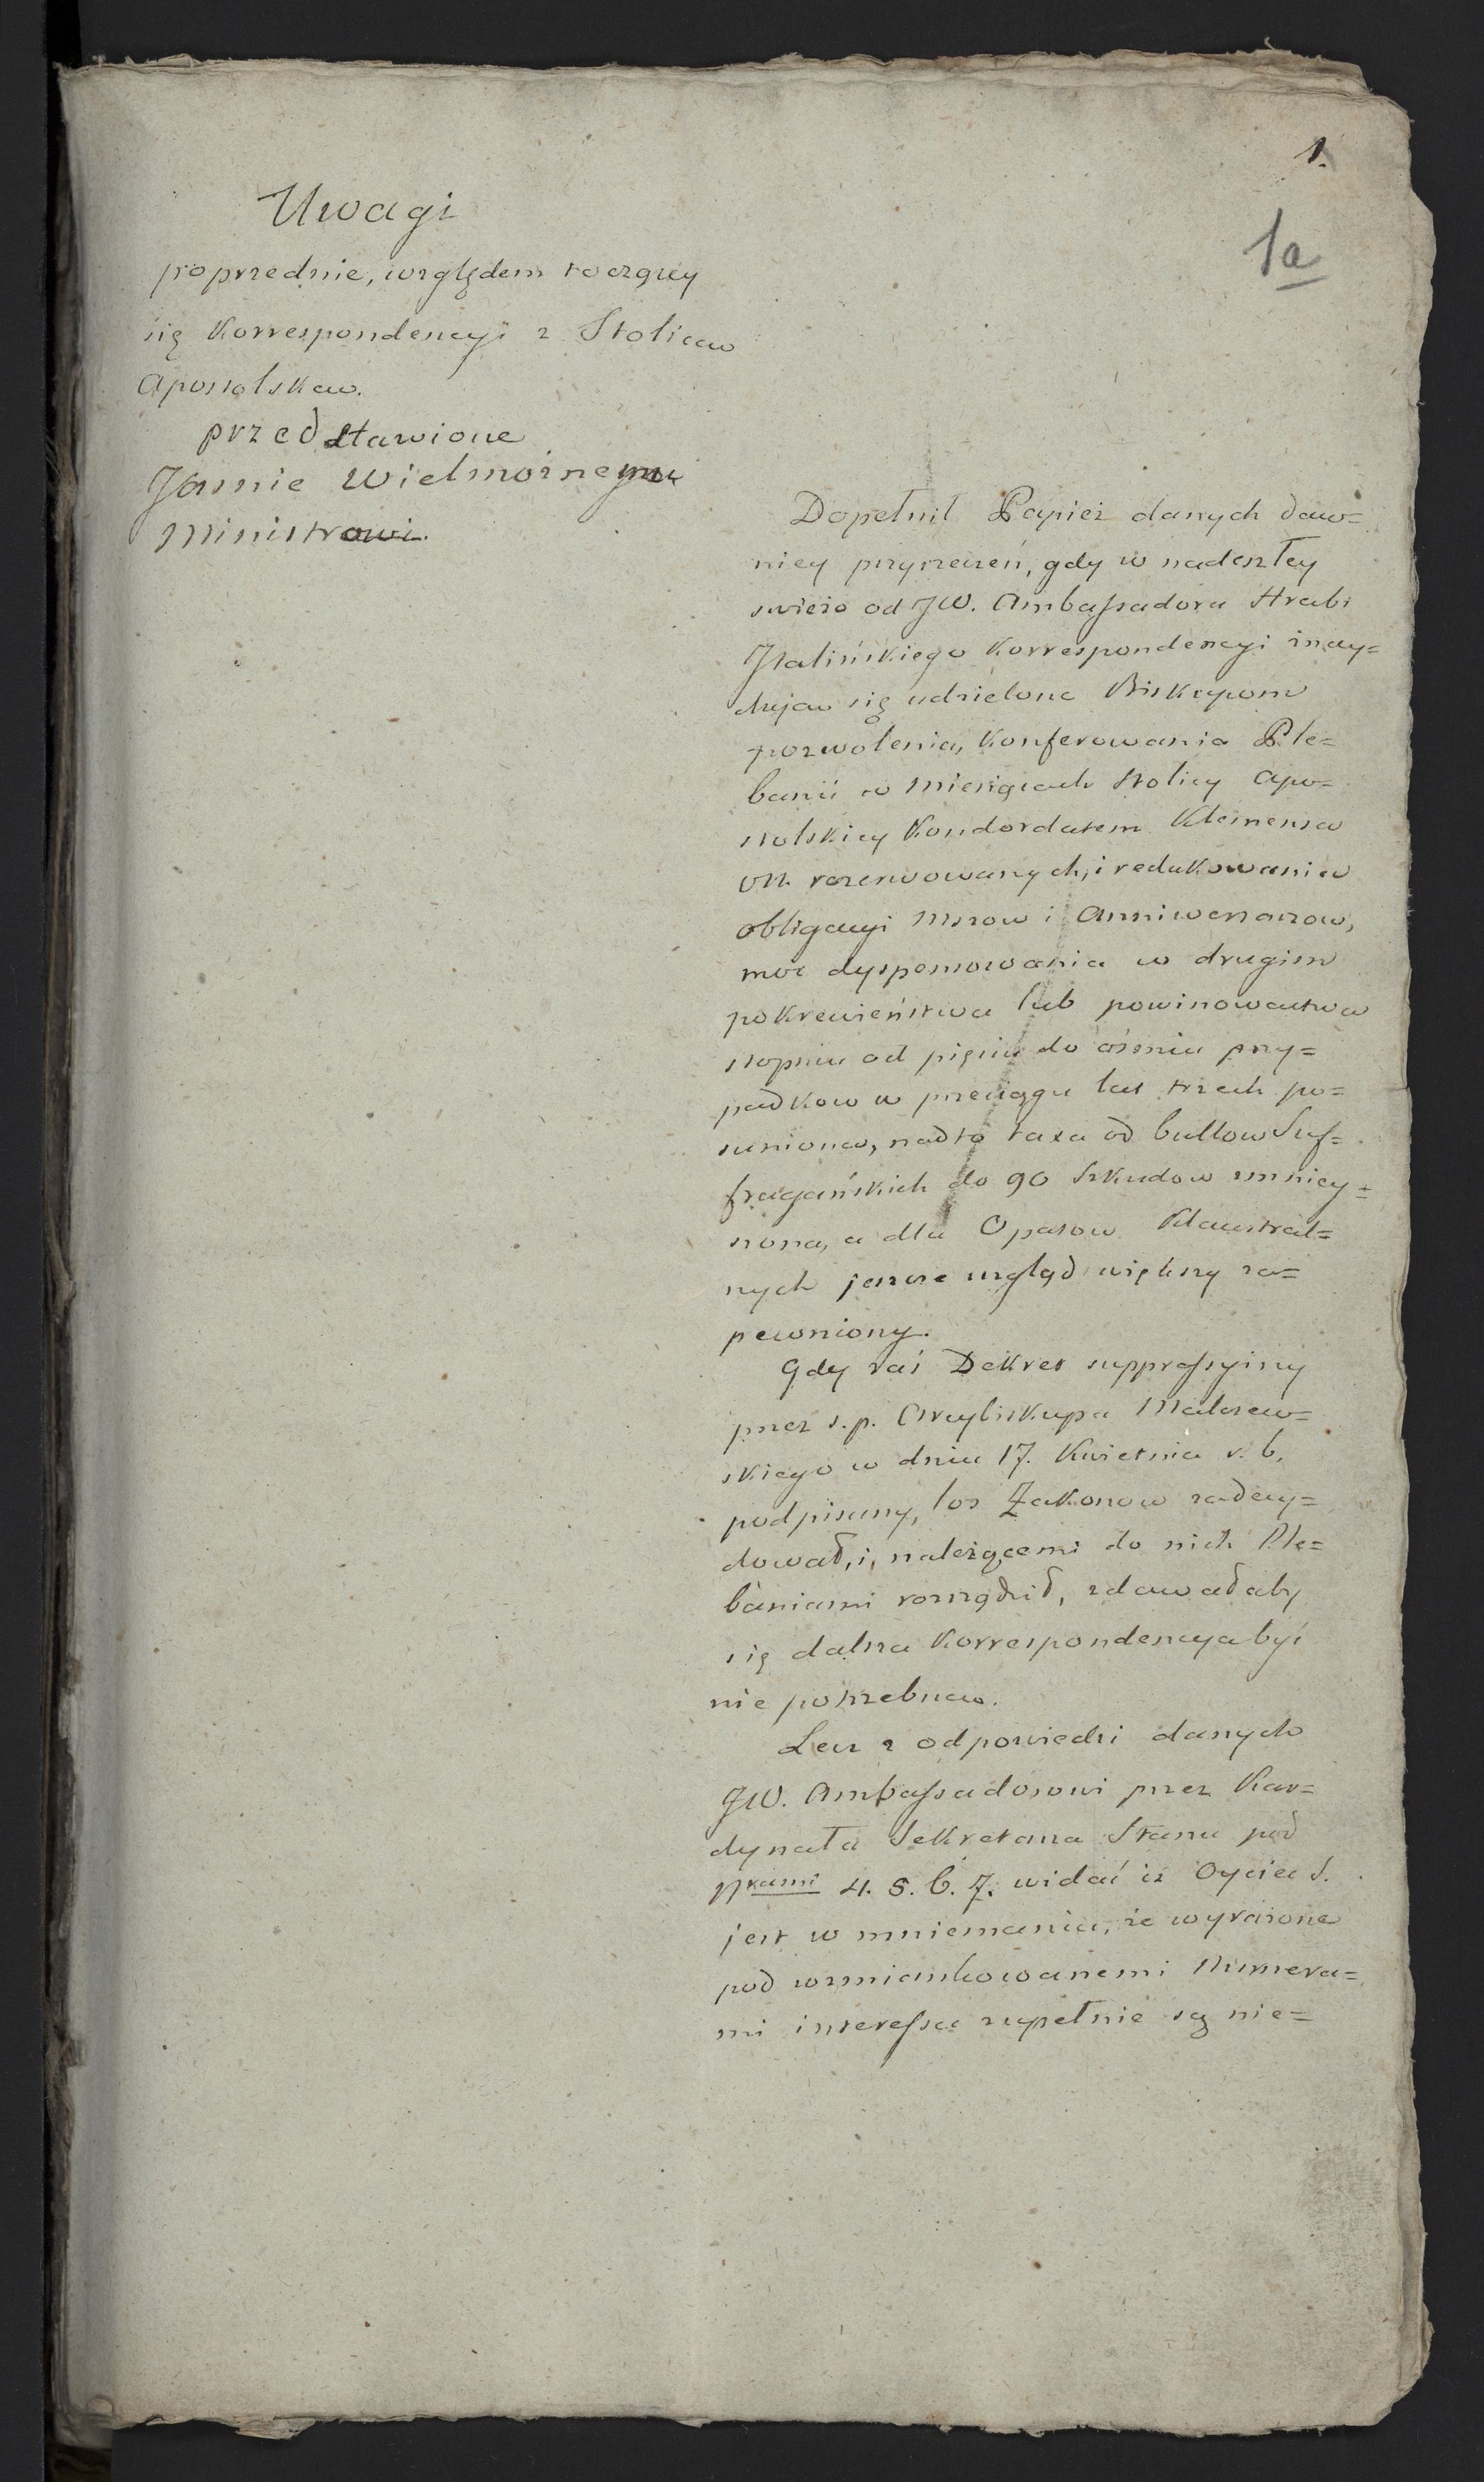 1.
1a
Uwagi
poprzednie, względem toczącey
się Korrespondencyi z Stolicą
Apostolską.
przedstawione
Jaśnie Wielmożnemu
Ministrowi.
Dopełnił Papież danych daw=
niey przyrzeczeń, gdy w nadeszłey
świeżo od JW. Ambassadora Hrabi
Italińskiego Korrespondencyi znay=
dują się udzielone Biskupom
pozwolenia, Konferowania Ple=
banii w Miesiącach Stolicy Apo=
stolskiey Kondordatem Klemensa
VIII. rezerwowanych, i redukowania
obligacyi Mszow i Anniwersarzow,
moc dyspensowania w drugim
pokrewieństwa lub powinowactwa
stopniu od pięciu do ośmiu przy=
padkow w przeciągu lat trzech po=
sunioną, nadto taxa od bullow Suf=
fragańskich do 90 Szkudow zmniey=
szona, a dla Opatow Klaustral=
nych jeszcze wzgląd większy za=
pewniony.
Gdy zaś Dekret suppressyiny
przez ś.p. Arcybiskupa Malczew=
skiego w dniu 17. Kwietnia r. b.
podpisany, los Zakonow zadecy=
dował, i, należącemi do nich Ple=
baniami rozrządził, zdawałaby
się dalsza Korrespondencya być
nie potrzebną.
Lecz z odpowiedzi danych
JW. Ambassadorowi przez Kar=
dynała Sekretarza Stanu pod
Nrami 4. 5. 6. 7. widać iż Oyciec S.
jest w mniemaniu, że wyrażone
pod wzmiankowanemi Numera=
mi interessa zupełnie są nie=